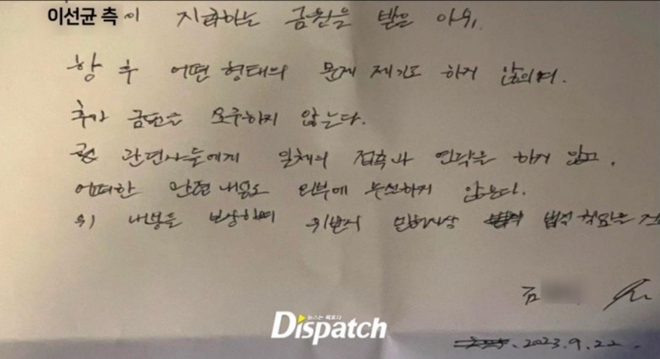 이선균 측이 지급하는 금원을 받은 이후,
향후 어떤 형태의 문제 제기도 하지 않으며,
추가 금전을 요구하지 않는다.
관련사들에게 일체의 접촉과 연락을 하지 않고,
어떠한 관련 내용도 외부에 누설하지 않는다.
위 내용을 보장하며 위반시 민형사상 법적 책임은
김
뉴스는 팩트다
Dispatch
2023.9.22.